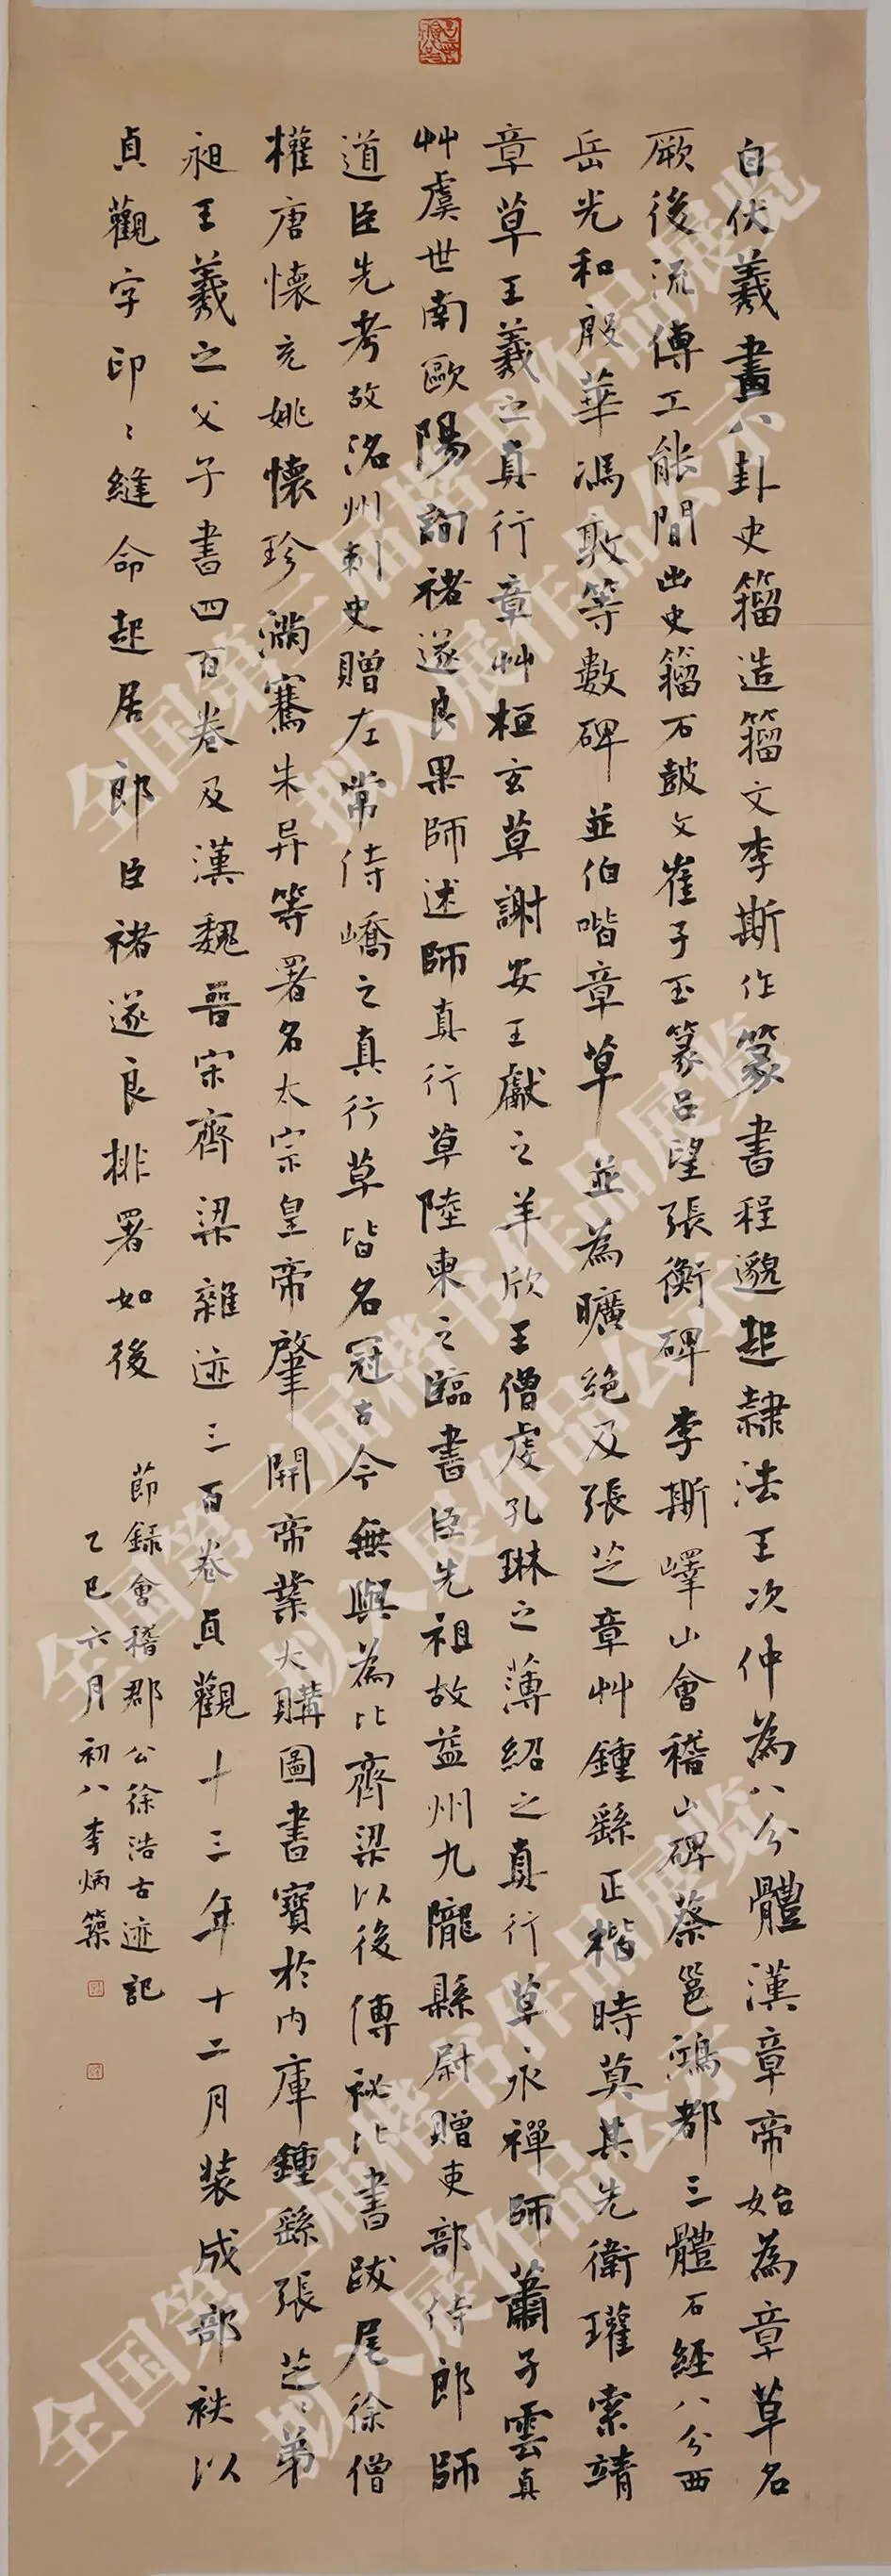 自伏羲畫八卦史籀造籀文李斯作篆書程邈起隷法王次仲為八分體漢章帝始為章草名
厥後流傳工能間出史籀石鼓文崔子玉篆呂望張衡碑李斯嶧山會稽山碑蔡邕鴻都三體石經八分西
岳光和殷華馮敦等數碑並伯喈章草並為曠絶及張芝章艸鍾繇正楷時莫其先衛瓘索靖
章草王羲之真行章艸桓玄草謝安王獻之羊欣王僧虔孔琳之薄紹之真行草永禪師蕭子雲真
艸虞世南歐陽詢褚遂良果師述師真行草陸柬之臨書臣先祖故益州九隴縣尉贈吏部侍郎師
道臣先考故洺州刺史贈左常侍嶠之真行草皆名冠古今無與為比齊梁以後傳祕比書跋尾徐僧
權唐懷充姚懷珍滿騫朱异等署名太宗皇帝肇開帝業大購圖書寶於內庫鍾繇張芝芝弟
昶王羲之父子書四百卷及漢魏晉宋齊梁雜迹三百卷貞觀十三年十二月裝成部袟以
貞觀字印〻縫命起居郎臣褚遂良排署如後
節録會稽郡公徐浩古迹記
乙巳六月初八李炳築
全国第三届楷书作品展览
拟入展作品公示
全国第三届楷书作品展览
拟入展作品公示
全国第三届楷书作品展览
拟入展作品公示